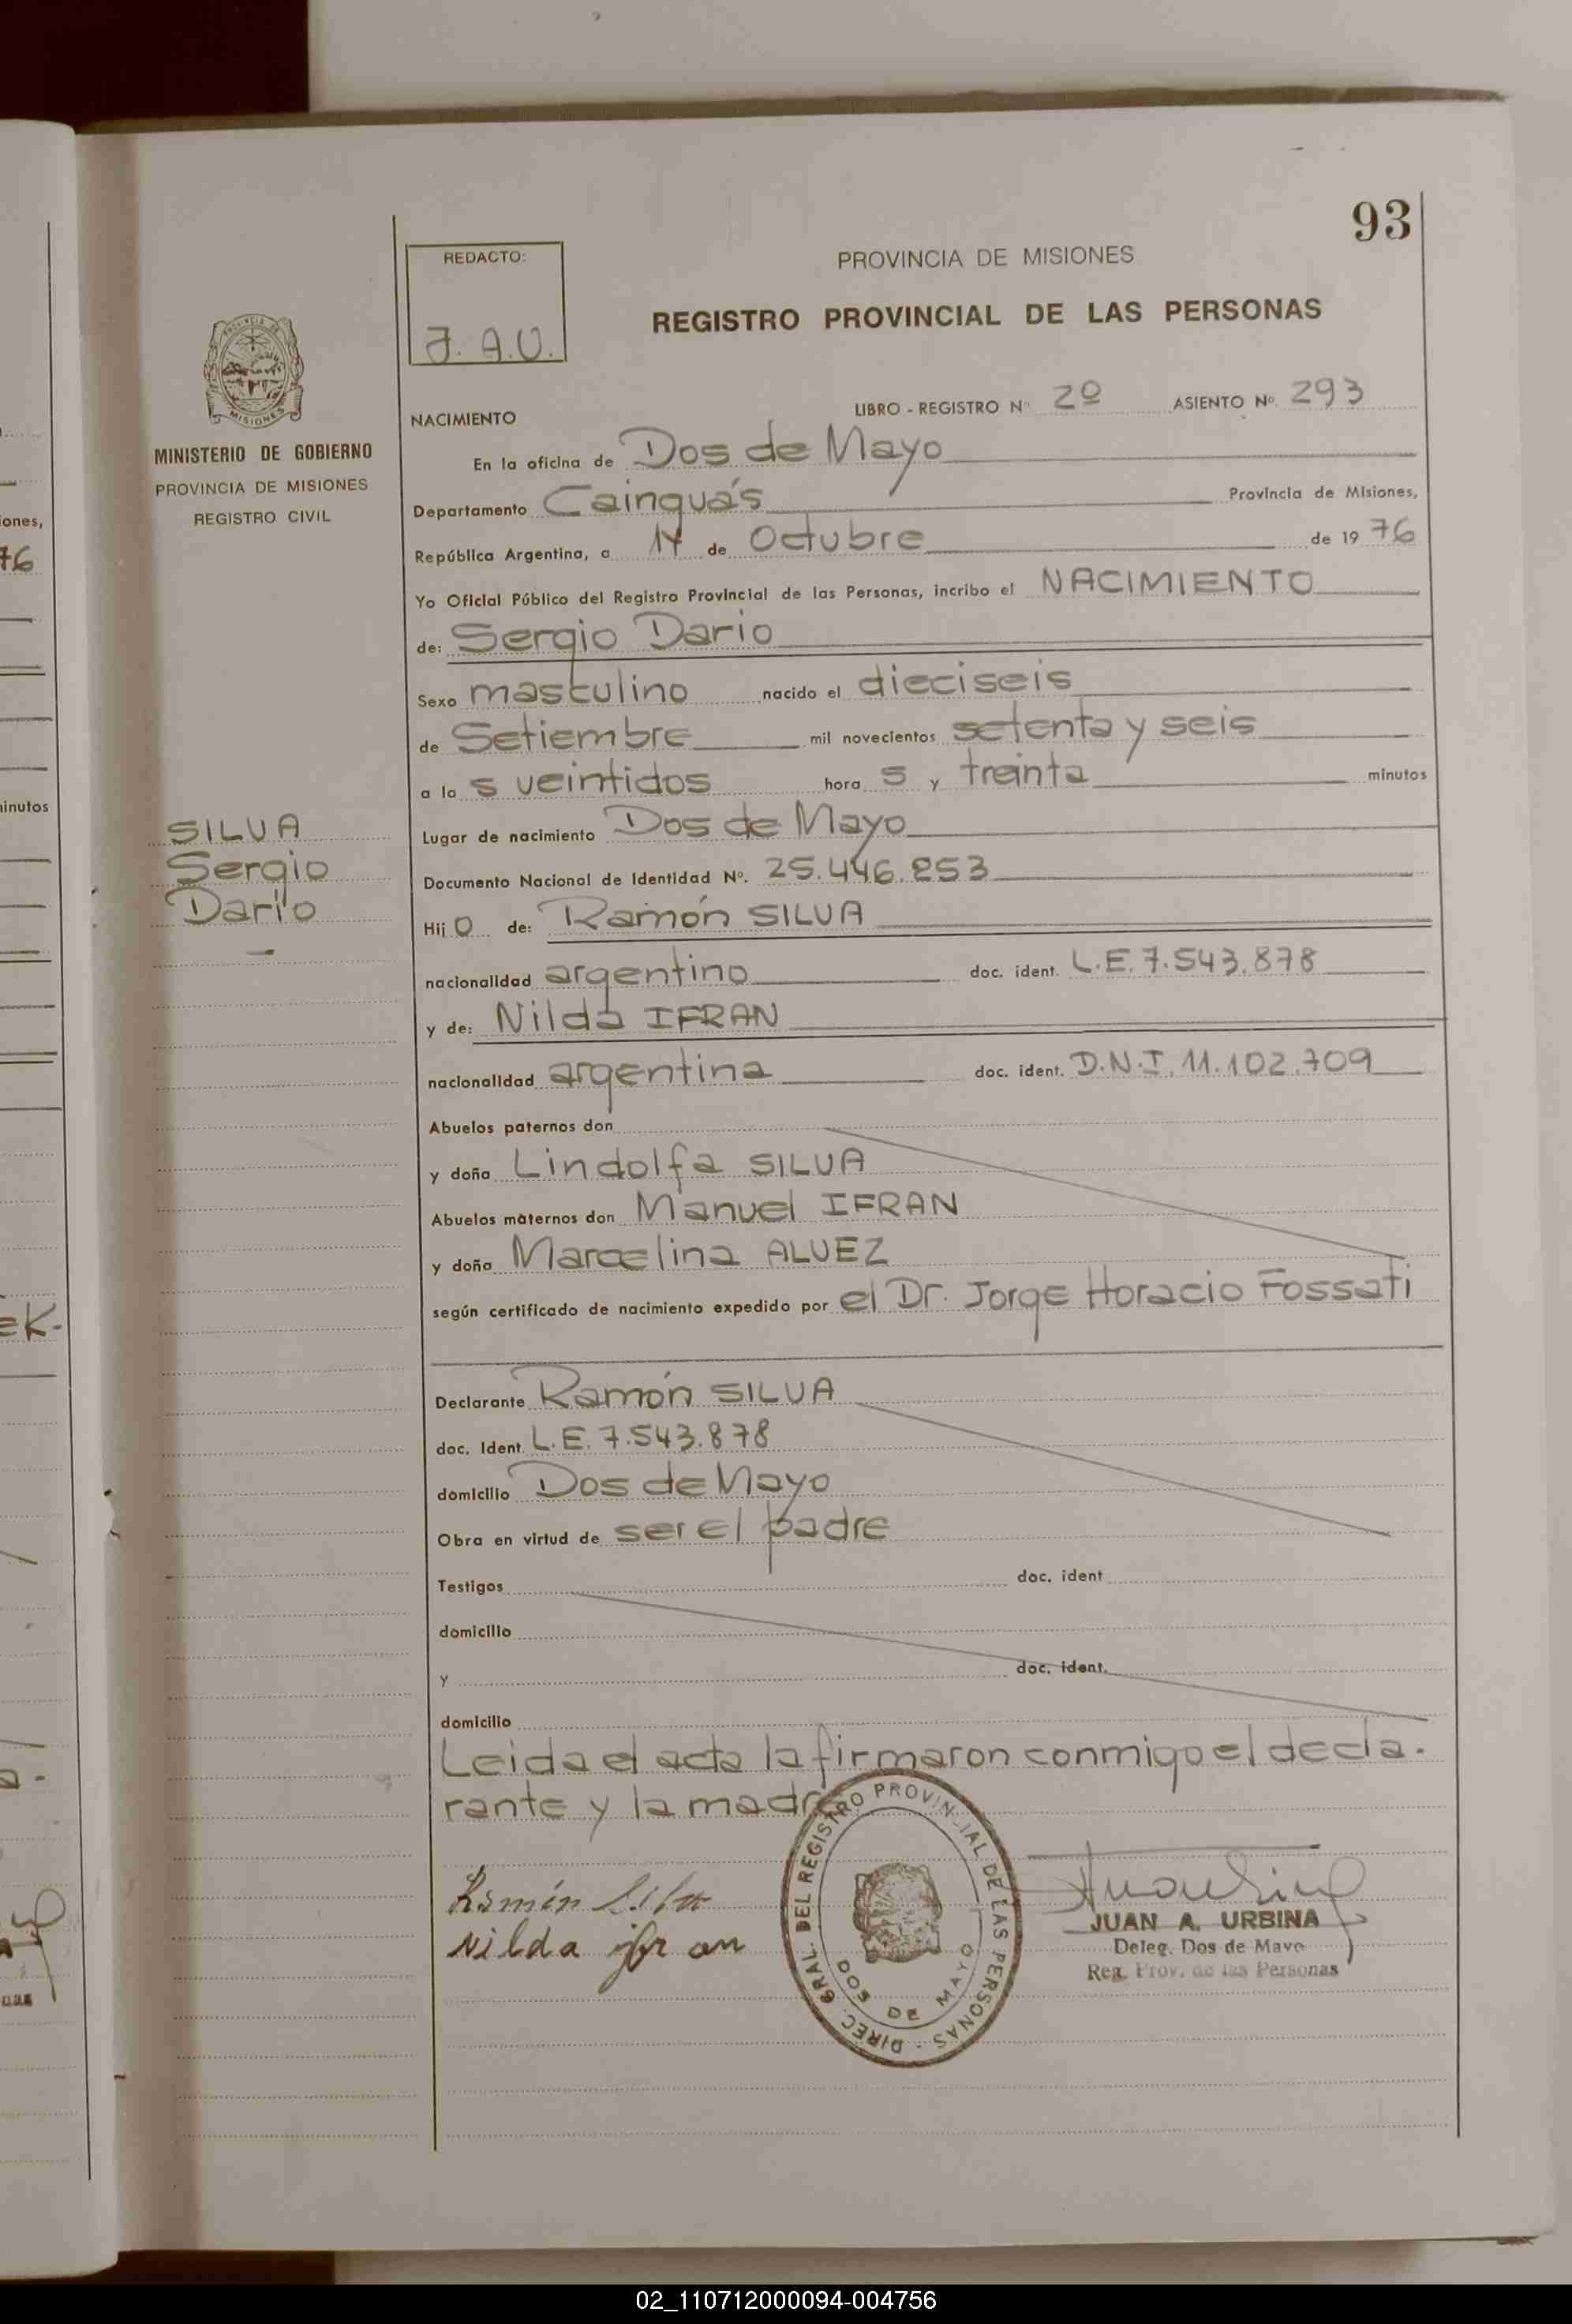 93
REDACTO:
J. A.U.
PROVINCIA DE MISIONES
REGISTRO PROVINCIAL DE LAS PERSONAS
PROVINCIA DE
MISIONES
MINISTERIO DE GOBIERNO
PROVINCIA DE MISIONES
REGISTRO CIVIL
NACIMIENTO LIBRO - REGISTRO Nº 2º ASIENTO Nº. 293
En la oficina de Dos de Mayo
Departamento Cainguás Provincia de Misiones,
República Argentina, a 14 de Octubre de 19 76
Yo Oficial Público del Registro Provincial de las Personas, incribo el NACIMIENTO
de: Sergio Dario
Sexo masculino nacido el dieciseis
de Setiembre mil novecientos setenta y seis
a la s veintidos hora s y treinta minutos
SILVA
Sergio
Darío
Lugar de nacimiento Dos de Mayo
Documento Nacional de Identidad Nº. 25.446.253
Hij o de: Ramón SILVA
nacionalidad argentino doc. ident. L.E. 7.543.878
y de: Nilda IFRAN
nacionalidad argentina doc. ident. D.N.I. 11.102.709
Abuelos paternos don
y doña Lindolfa SILVA
Abuelos maternos don Manuel IFRAN
y doña Marcelina ALVEZ
según certificado de nacimiento expedido por el Dr. Jorge Horacio Fossati
Declarante Ramón SILVA
doc. Ident. L.E. 7.543.878
domicilio Dos de Mayo
Obra en virtud de ser el padre
Testigos doc. ident
domicilio
y doc. ident.
domicilio
Leida el acta la firmaron conmigo el decla-
rante y la madre
Ramón Silva
Nilda ifran
DIREC. GRAL. DEL REGISTRO PROVINCIAL DE LAS PERSONAS -
DOS DE MAYO
JUAN A. URBINA
Deleg. Dos de Mayo
Reg. Prov. de las Personas
iones,
76
minutos
ek-
a-
nas
02_110712000094-004756